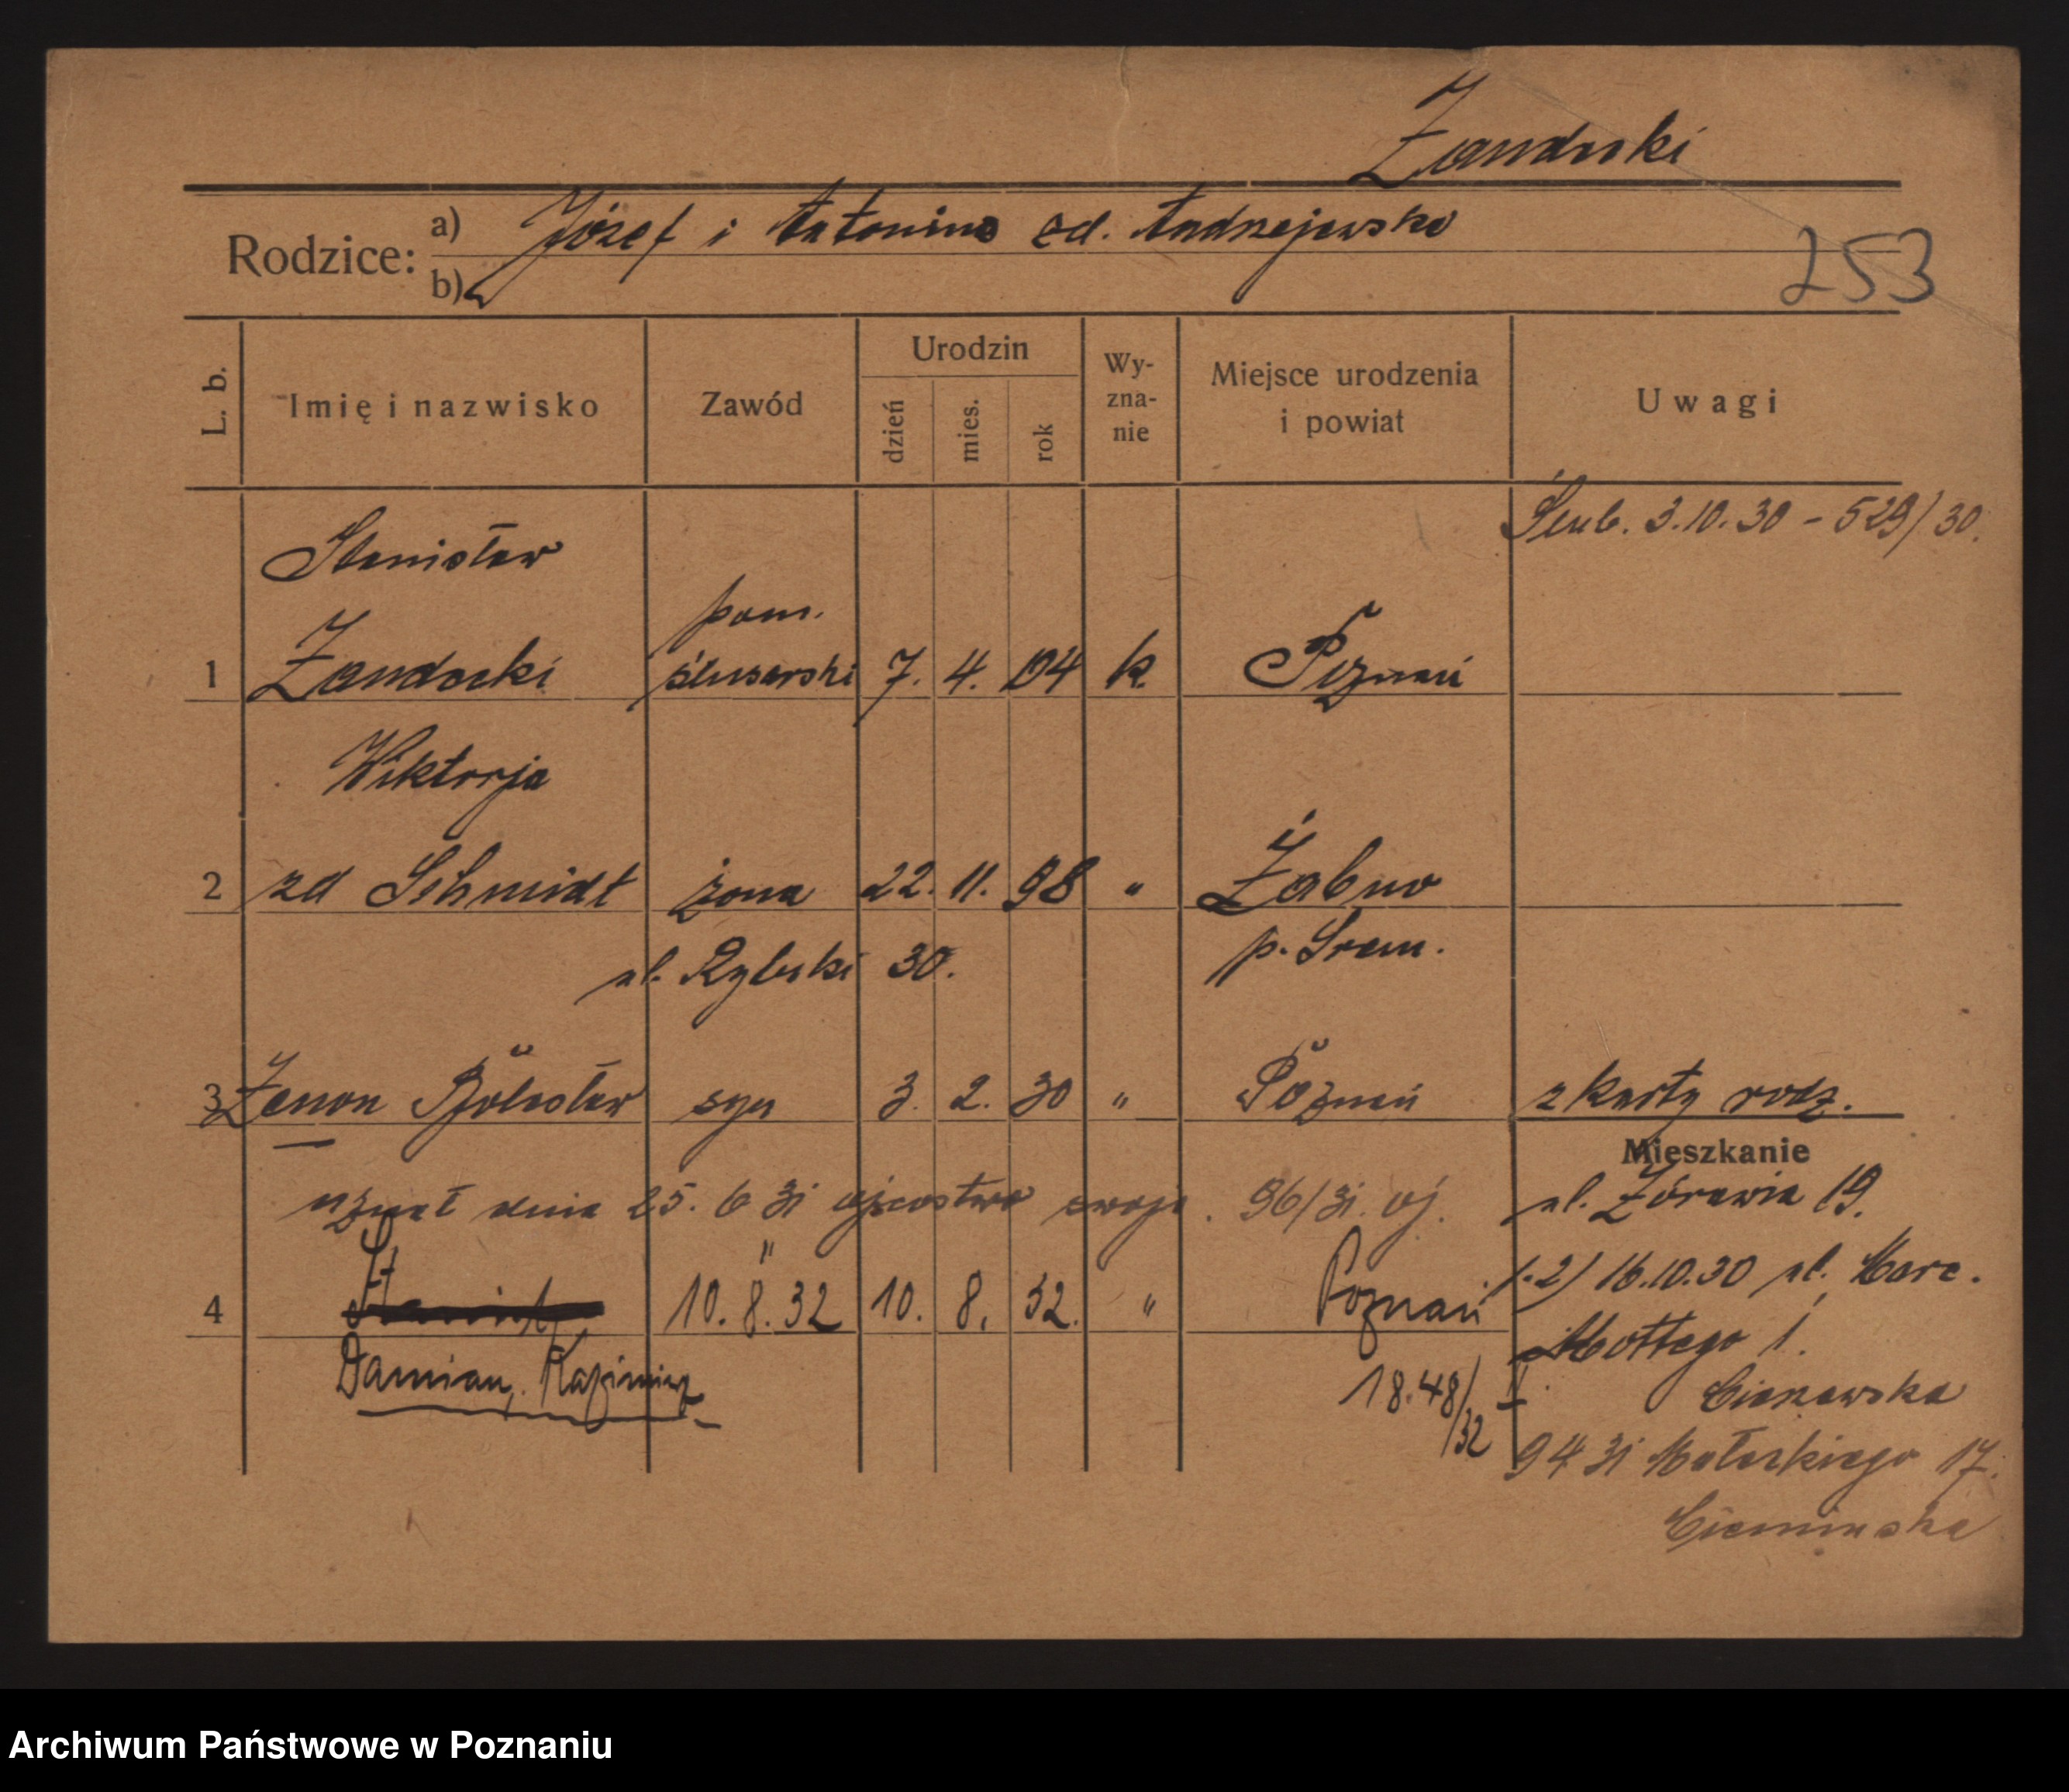 Żandecki
Rodzice: a) Józef i Antonina zd. Andrzejewska
b)
253
L. b. Imię i nazwisko Zawód Urodzin dzień mies. rok Wyznanie Miejsce urodzenia i powiat Uwagi
Ślub. 3.10.30 - 529/30.
Stanisław
pom.
1 Żandecki ślusarski 7. 4. 04 k. Poznań
Wiktorja
2 zd Schmidt żona 22. 11. 98 " Żabno
p. Śrem.
ul. Rybaki 30.
3 Zenon Bolesław syn 3. 2. 30 " Poznań z karty rodz.
Mieszkanie
uznał dnia 25. 6 31 ojcostwo swoje. 96/31. oj.
ul. Żórawia 19.
"
1.2) 16.10.30 ul. Marc.
4 10. 8. 32 10. 8. 32. " Poznań
Mottego 1.
Damian, Kazimierz
18.48/32 I.
9 4 31 Małeckiego 17.